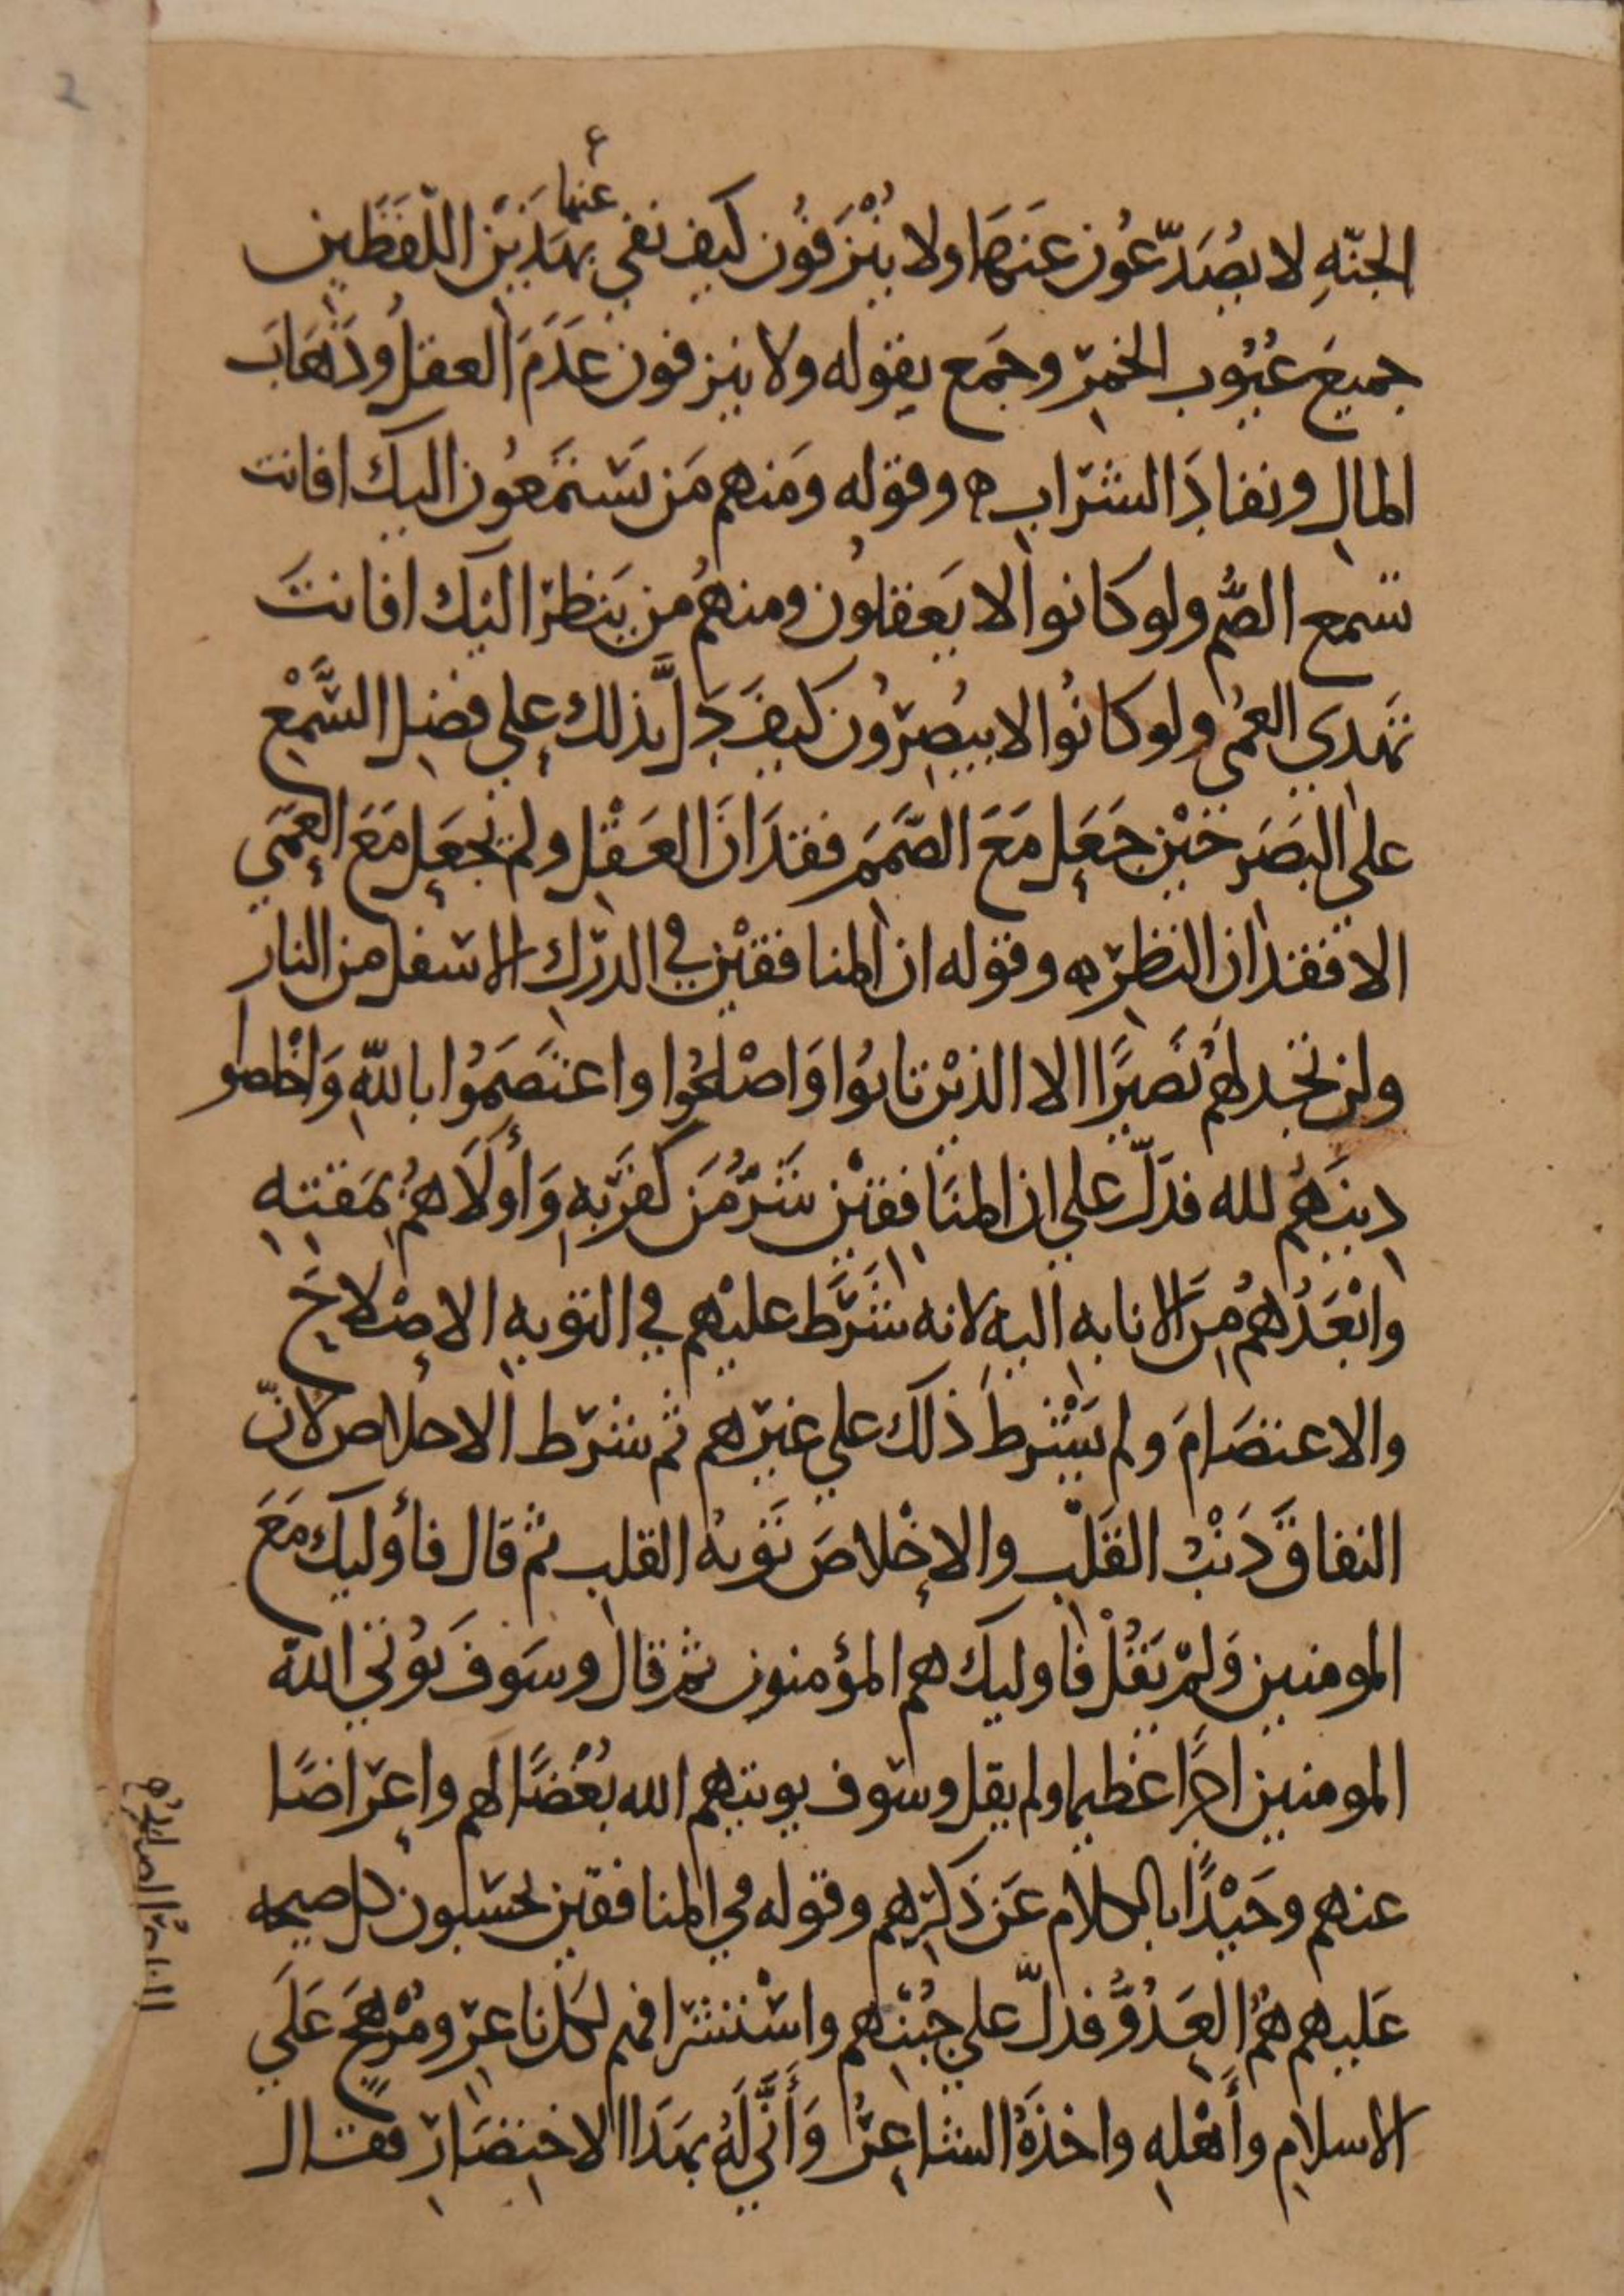 عنها
الجنّهِ لا يُصَدّعُون عَنهَا ولا يُنْزَفُون كيف نفى بهَذَيْن اللّفظَين
جميعَ عُيُوب الخمرِ وجَمع بقوله ولا ينزفون عَدَمَ العقلِ وذَهَابَ
المالِ ونفادَ الشراب ه وقوله ومَنهم مَن يَستمَعُون اليك افانت
تسمع الصُّم ولو كانوا لا يَعقلون ومنهُم من يَنظر اليك افانتَ
تهدي العُمي ولو كانُوا لا يبُصِرُون كيفَ دَلَّ بذلك على فضلِ السَّمْعِ
على البَصَر حَيْن جَعَل مَعَ الصَّمَمِ فقدَانَ العَقْلِ ولم يجعَل مَعَ العَمَي
الا فقدان النظرِ ه وقوله ان المنافقيْن في الدرَك الاسفل من النار
ولن تجد لهُم نَصيَرًا الا الذيْن تابُوا وَاصْلحُوا واعتَصَمُوا باللّهِ وَاخْلصُو
دِينَهُم لله فدَلّ على ان المنَافِقيْن شَرُّ مَن كفَر بهِ وَأولَاهُم بمَقتهِ
وابْعَدُهُم مِنَ الانابهِ اليهِ لانه شَرَط عليْهم في التوبه الاصْلاحَ
والاعتصَامَ ولم يَشْترط ذلك علي غيرهم ثم شرَط الاخلاص لانّ
النفاقَ ذَنْبُ القَلْبِ والاخْلاصَ تَوبهُ القلبِ ثم قال فأوليك مَعَ
المومنين وَلمْ يَقُلْ فاوليك هم المؤمنون ثم قال وسَوفَ يُوتي اللّهُ
المومنين اجرًا عظيما ولم يقل وسَوف يوتيهم الله بُغْضًا لهم واعراضًا
عنهم وحَيْدًا بالكلام عَن ذكرِهم وقوله في المنافقين يحسَبون كل صيحه
عَليهم هُمُ العَدُوُّ فدلّ على جُبْنهم واسْتشرافهم لكل ناعرٍ ومُرْهجٍ عَلَي
الاسلامِ وأهْلهِ واخذَهُ الشاعِرُ وَأَنَّي لَهُ بهَذَا الاختصَارِ فقال